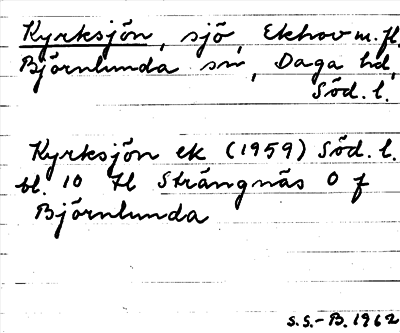 Kyrksjön, sjö, Ekhov m.fl.
Björnlunda sn, Daga hd,
Söd. l.
Kyrksjön ek (1959) Söd. l.
bl. 10 Hl Strängnäs O f
Björnlunda
S.S.-B. 1962